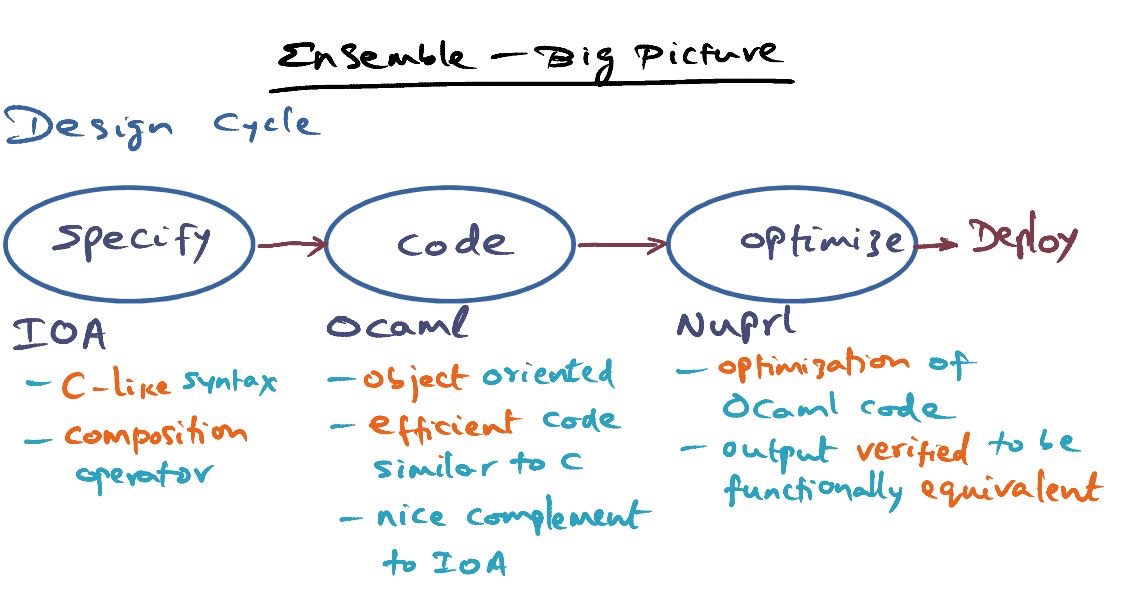 Ensemble - Big Picture
Design Cycle
Specify
Code
optimize
Deploy
IOA
- C-like syntax
- composition
operator
Ocaml
- object oriented
- efficient code
similar to C
- nice complement
to IOA
Nuprl
- optimization of
Ocaml code
- output verified to be
functionally equivalent